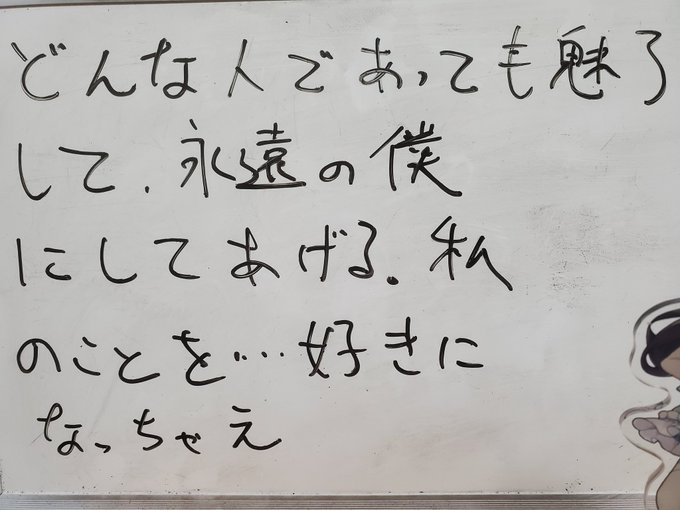 どんな人であっても魅了
して、永遠の僕
にしてあげる。私
のことを…好きに
なっちゃえ